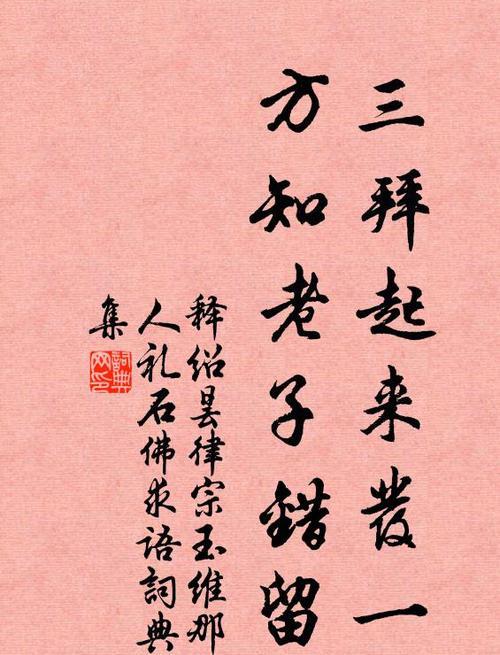 三拜起来發一
方知老子錯留
释绍昙律宗玉维那
人礼石佛求语詞典
集
詞典網印